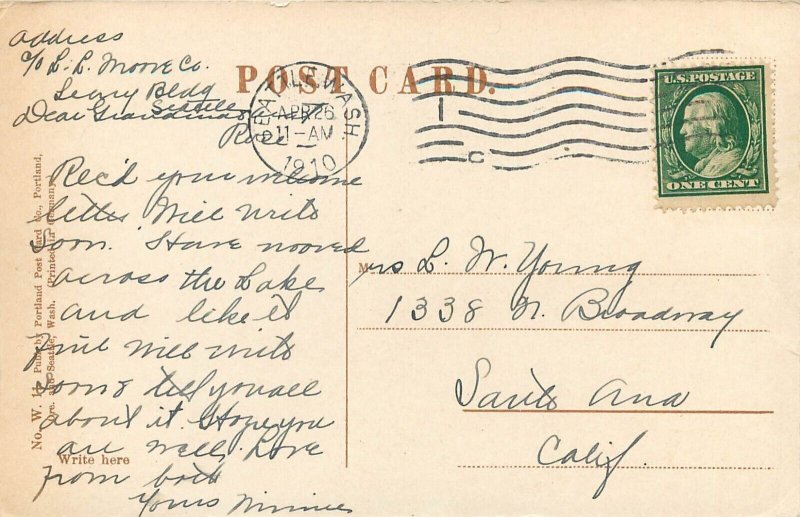 Address
c/o L. L. Moore Co.
Leary Bldg
Seattle
Dear Grandma
Rose
POST CARD.
SEATTLE, WASH.
APR 26
11-AM
1910
C
U.S. POSTAGE
ONE CENT
Rec'd your welcome
letter Will write
soon. Have moved
across the Lake
and like it
fine Will write
soon & tell you all
about it. Hope you
are well, Love
from both
Yours Minnie
Mrs L. W. Young
1338 N. Broadway
Santa Ana
Calif.
No. W. 14 Pub. by Portland Post Card Co., Portland,
Ore. and Seattle, Wash. (Printed in Germany)
Write here